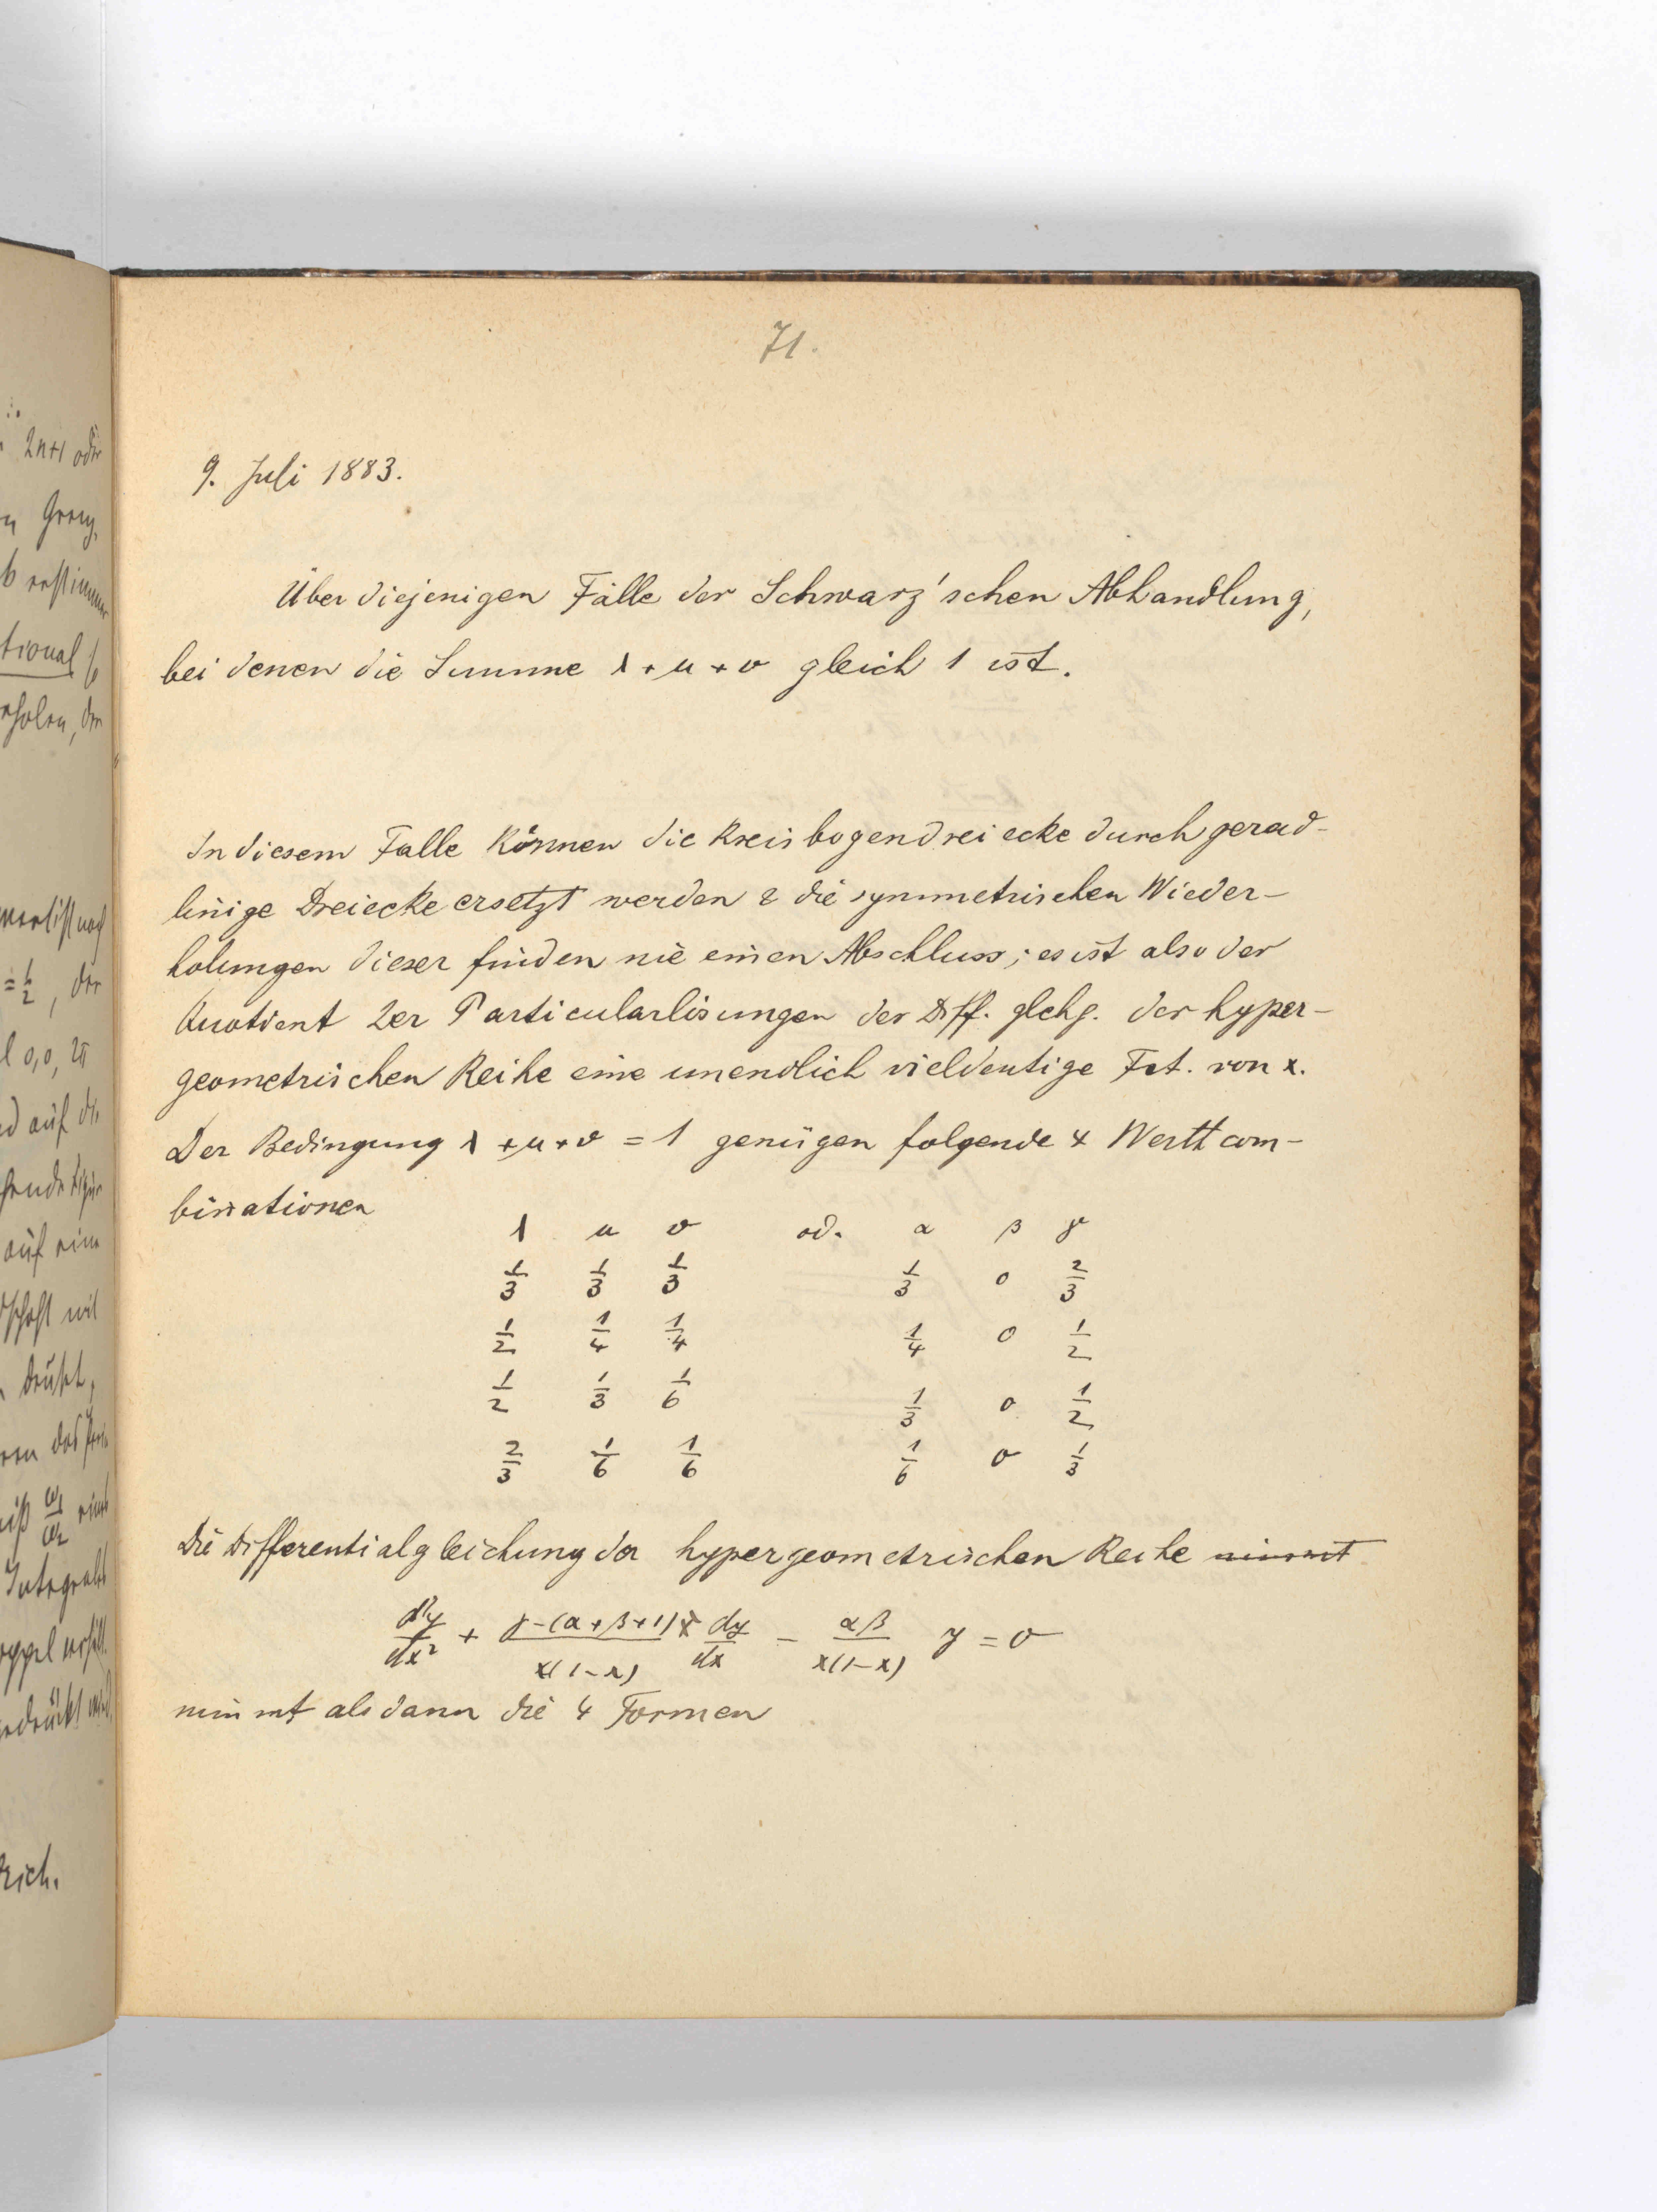 71.
9. Juli 1883.
Über diejenigen Fälle der Schwarz'schen Abhandlung,
bei denen die Summe λ+μ+ν gleich 1 ist.
In diesem Falle können die Kreisbogendreiecke durch gerad-
linige Dreiecke ersetzt werden & die symmetrischen Wieder-
holungen dieser finden nie einen Abschluss; es ist also der
Quotient 2er Particularlösungen der Diff. glchg. der hyper-
geometrischen Reihe eine unendlich vieldeutige Fct. von x.
Der Bedingung λ+μ+ν = 1 genügen folgende 4 Werthcom-
binationen
λ μ ν od. α β γ
1/3 1/3 1/3 1/3 0 2/3
1/2 1/4 1/4 1/4 0 1/2
1/2 1/3 1/6 1/3 0 1/2
2/3 1/6 1/6 1/6 0 1/3
Die Differentialgleichung der hypergeometrischen Reihe nimmt
d²y/dx² + γ-(α+β+1)x/x(1-x) dy/dx - αβ/x(1-x) y = 0
nimmt alsdann die 4 Formen
2n+1 oder
tional
= 1/2, der
0,0, 2π
auf die
auf eine
ω1/ω2